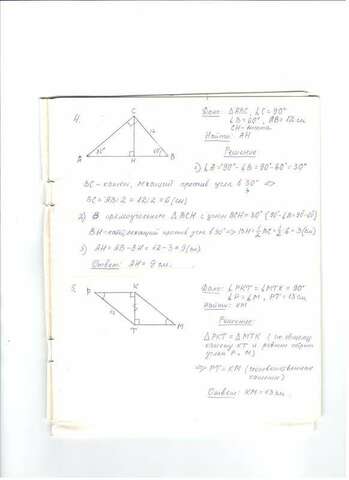 4.
Дано: △ABC, ∠C = 90°
∠B = 60°, AB = 12 см
CH - высота
Найти: AH
Решение:
C
12
30°
60°
A
H
B
1) ∠A = 90° - ∠B = 90° - 60° = 30°
BC - катет, лежащий против угла в 30° =>
BC = AB : 2 = 12 : 2 = 6 (см)
2) В прямоугольном △BCH с углом BCH = 30° (90° - ∠B = 90° - 60°)
BH - катет, лежащий против угла в 30° => BH = ½ BC = ½ · 6 = 3 (см)
3) AH = AB - BH = 12 - 3 = 9 (см).
Ответ: AH = 9 см.
5.
Дано: ∠PKT = ∠MTK = 90°
∠P = ∠M, PT = 13 см
Найти: KM
Решение:
P
K
13
T
M
△PKT = △MTK (по общему
катету KT и равным острым
углам P и M)
=> PT = KM (соответственные
Ответ: KM = 13 см.